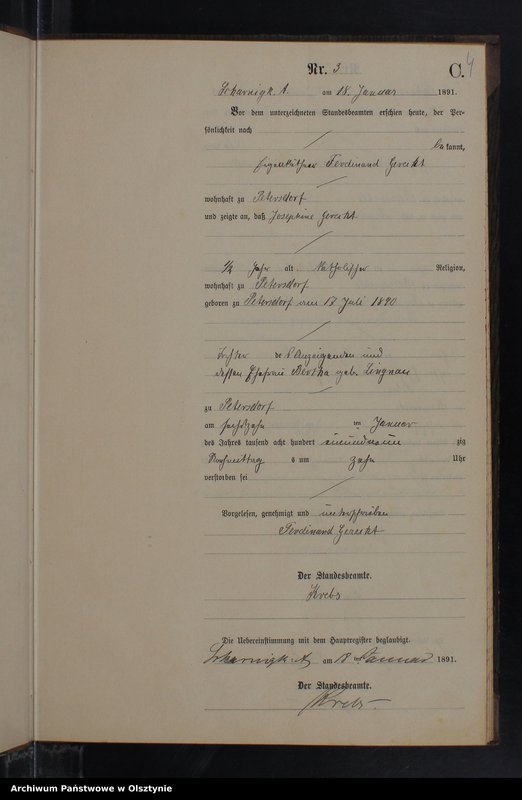 Nr. 3
C. 4
Scharnigk A. am 18. Januar 1891.
Vor dem unterzeichneten Standesbeamten erschien heute, der Per-
sönlichkeit nach
bekannt,
Eigenkäthner Ferdinand Gerickt
wohnhaft zu Petersdorf
und zeigte an, daß Josephine Gerickt
1/2 Jahr alt, katholischer Religion,
wohnhaft zu Petersdorf
geboren zu Petersdorf am 18 Juli 1890
Tochter des Anzeigenden und
dessen Ehefrau Bertha geb. Lingnau
zu Petersdorf
am sechszehn ten Januar
des Jahres tausend acht hundert einundneun zig
Nachmittag s um zehn Uhr
verstorben sei
Vorgelesen, genehmigt und unterschrieben
Ferdinand Gerickt
Der Standesbeamte.
Krebs
Die Uebereinstimmung mit dem Hauptregister beglaubigt.
Scharnigk A. am 18 ten Januar 1891.
Der Standesbeamte.
Krebs
Archiwum Państwowe w Olsztynie